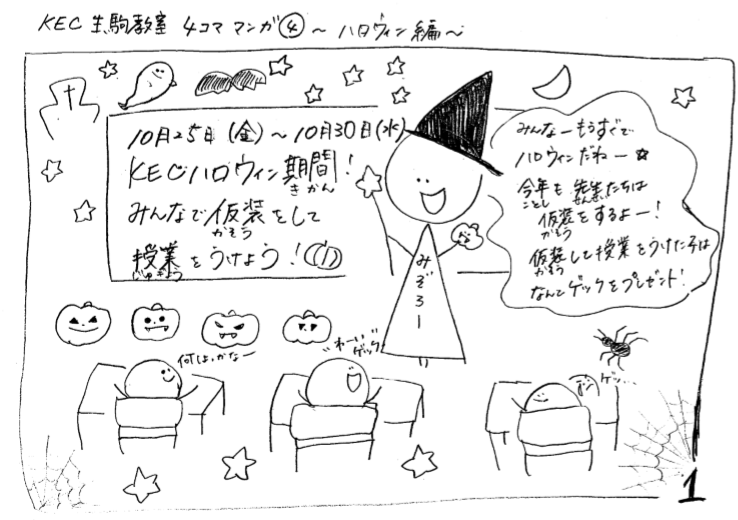 KEC 生駒教室 4コママンガ④ ~ ハロウィン編~
10月25日(金)~10月30日(水)
KECハロウィン期間!
きかん
みんなで仮装をして
かそう
授業をうけよう!
じゅぎょう
みんなーもうすぐで
ハロウィンだねー☆
今年も先生たちは
ことし せんせい
仮装をするよー!
かそう
仮装して授業をうけた子は
かそう
なんとゲックをプレゼント!
みぞろー
何しよっかなー
わーい
ゲック
ゲッ...
1